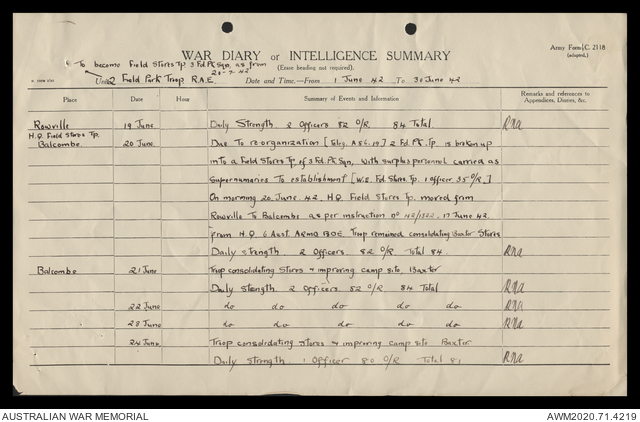 Army Form C. 2118
(adapted.)
WAR DIARY or INTELLIGENCE SUMMARY
(Erase heading not required).
To become Field Stores Tp 3 Fd Pk Sqn as from
20-7-42
Unit 2 Field Park Troop R.A.E. Date and Time.—From 1 June 42 To 30 June 42
Place Date Hour Summary of Events and Information Remarks and references to Appendices, Diaries, &c.
Rowville 19 June Daily Strength 2 Officers 82 O/R 84 Total
H.Q. Field Stores Tp.
Balcombe 20 June Due To reorganization 2 Fd. Pk. Tp. is broken up
into a Field Stores Tp. of 3 Fd. Pk Sqn, with surplus personnel carried as
Supernumaries To establishment [W.E. Fd. Stores Tp. 1 Officer 35 O/R]
On morning 20 June 42, H.Q. Field Stores Tp moved from
Rowville To Balcombe as per instruction no 42/1322, 17 June 42
from H.Q. 6 Aust. Armd BDE. Troop remained consolidating Baxter Stores
Daily strength 2 Officers 82 O/R Total 84
Balcombe 21 June Troop consolidating Stores & improving camp site, Baxter
Daily Strength 2 Officers 82 O/R 84 Total
22 June do do do do do
23 June do do do do do
24 June Troop consolidating stores & improving camp site Baxter
Daily Strength 1 Officer 80 O/R Total 81
AUSTRALIAN WAR MEMORIAL
AWM2020.71.4219